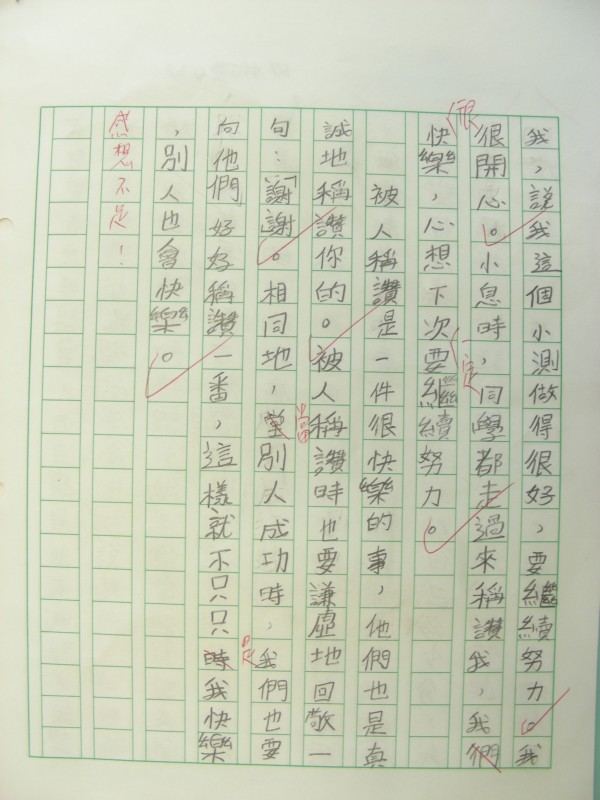 我，說我這個小測做得很好，要繼續努力。我
很開心。小息時，同學都走過來稱讚我，我們
很
快樂，心想下次要繼續努力。
一定
被人稱讚是一件很快樂的事，他們也是真
誠地稱讚你的。被人稱讚時也要謙虛地回敬一
句：「謝謝。相同地，當別人成功時，我們也要
當
向他們好好稱讚一番，這樣就不只只時我快樂
是
，別人也會快樂。
感想不足！